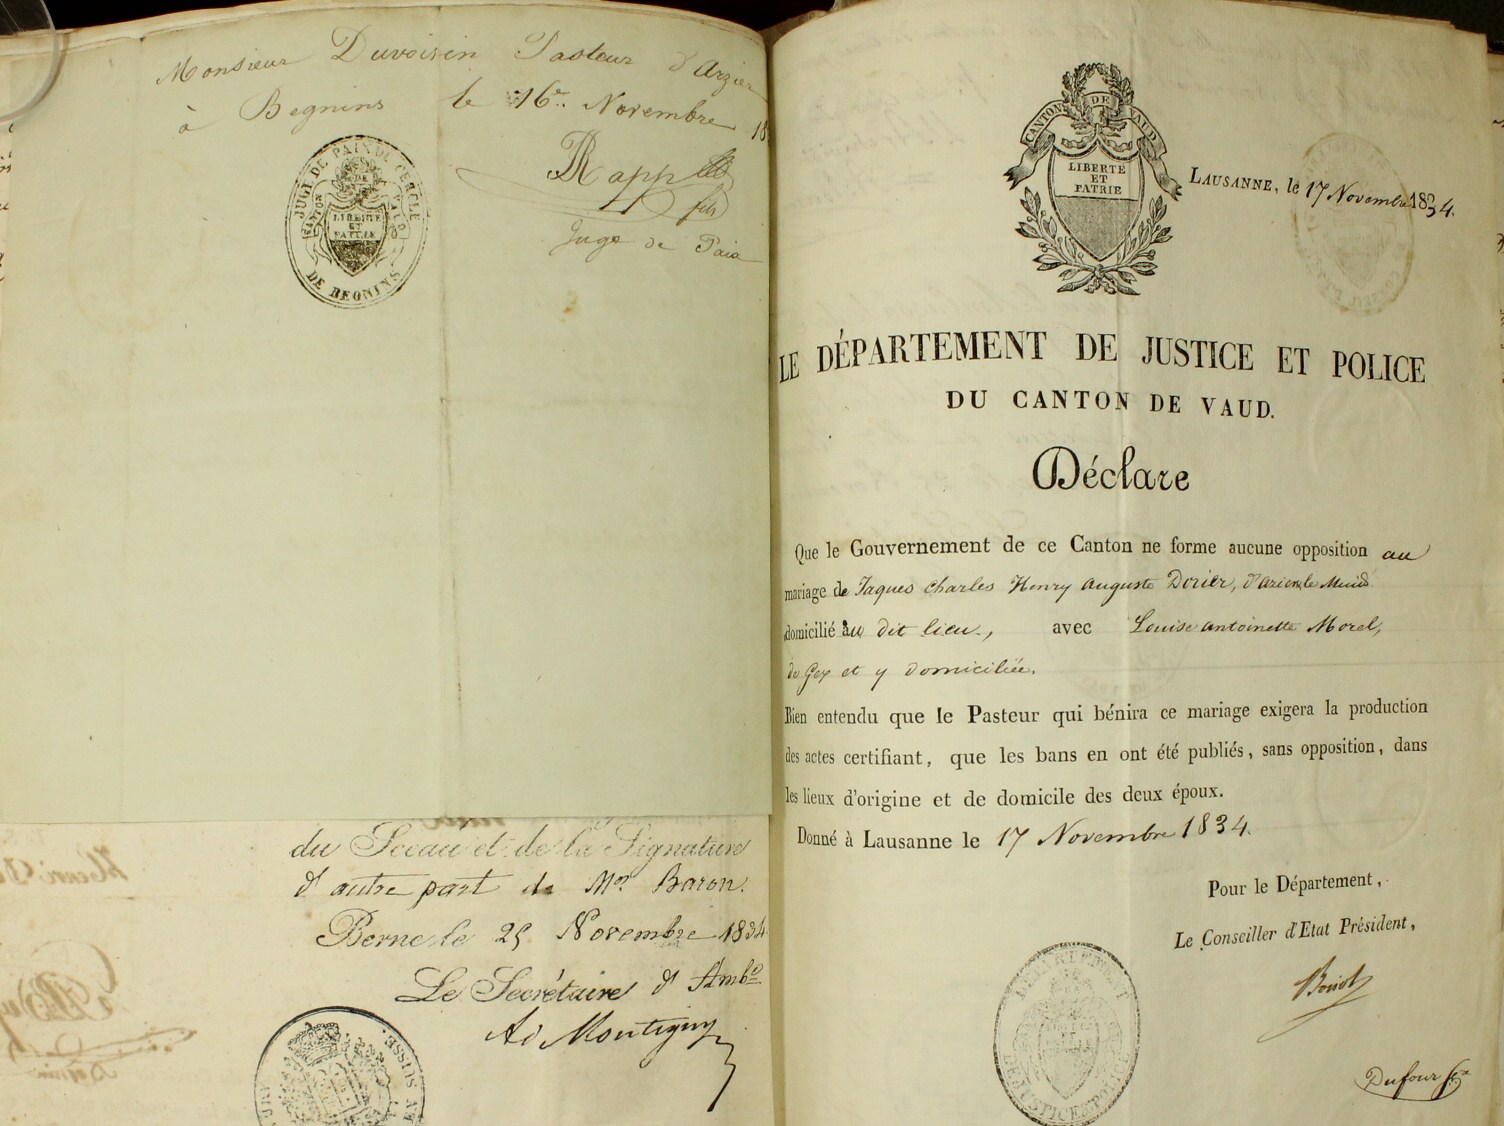 Monsieur Duvoisin Pasteur d'Arzier
à Begnins le 16e. Novembre 18
JUGE DE PAIX DU CERCLE
DE BEGNINS
CANTON DE VAUD
LIBERTE
ET
PATRIE
fils
Juge de Paix
du Sceau et de la Signature
d'autre part de Mr. Baron.
Berne le 25 Novembre 1834
Le Secrétaire d'Ambe.
Ad Montigny
SUISSE
CANTON DE VAUD
LIBERTÉ
ET
PATRIE
LAUSANNE, le 17 Novembre 1834.
LE DÉPARTEMENT DE JUSTICE ET POLICE
DU CANTON DE VAUD.
Déclare
Que le Gouvernement de ce Canton ne forme aucune opposition au
mariage de Jaques Charles Henry Auguste Dorier, d'Arzier le Muids
domicilié au dit lieu, avec Louise Antoinette Morel,
de Gex et y domiciliée.
Bien entendu que le Pasteur qui bénira ce mariage exigera la production
des actes certifiant, que les bans en ont été publiés, sans opposition, dans
les lieux d'origine et de domicile des deux époux.
Donné à Lausanne le 17 Novembre 1834.
Pour le Département,
Le Conseiller d'Etat Président,
DÉPARTEMENT
DE JUSTICE ET POLICE
Dufour